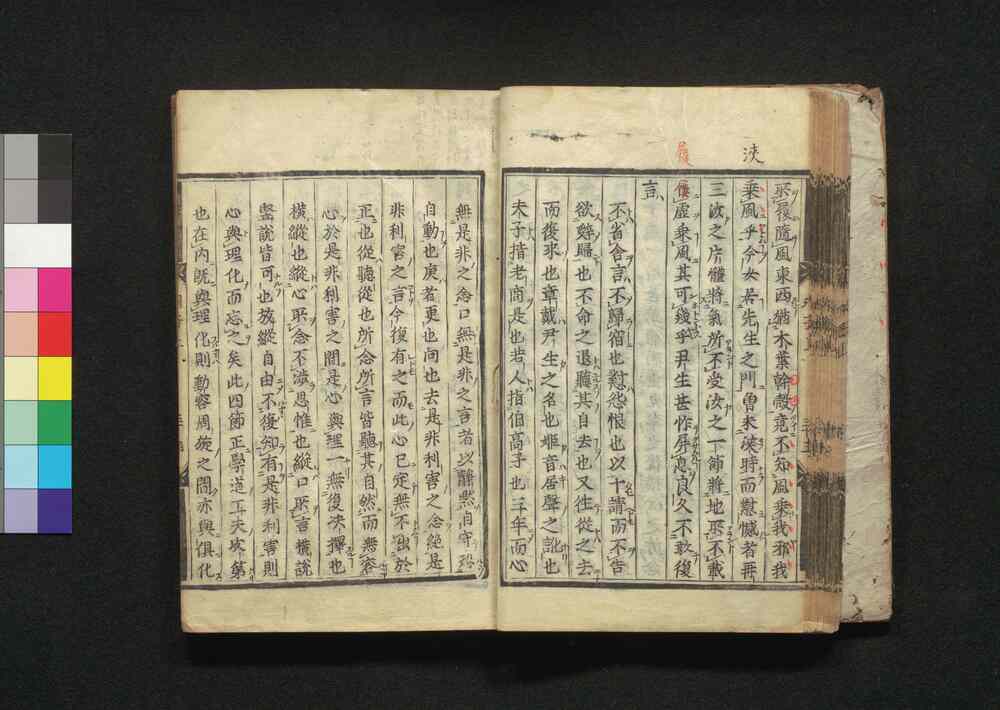 浹
履
所履隨風東西猶木葉幹殻竟不知風乘我邪我
乘風乎今女居先生之門曾未浹時而懟憾者再
三汝之片體將氣所不受汝之一節將地所不載
履虛乘風其可幾乎尹生甚怍屏息良久不敢復
言
不省舍言不歸宿也懟怨恨也以十請而不告
欲辭歸也不命之退聽其自去也又往從之去
而復來也章戴尹生之名也姬音居聲之訛也
夫子指老商是也若人指伯高子也三年而心
無是非之念口無是非之言者以默自守
自動也庚者更也向也去是非利害之念絕是
非利害之言今復有之而此心已定無不出於
正也從聽從也所念所言皆聽其自然而無容
心於是非利害之間是心與理一無復決擇也
橫縱也縱心所念不涉思惟也縱口所言橫說
豎說皆可也放縱自由不復知有是非利害則
心與理化而忘之矣此四節正學道工夫次第
也在內既與理化則動容周旋之間亦與俱化